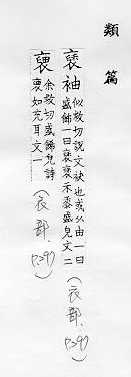 類篇
褎 袖 似救切說文袂也或从由一曰
盛飾一曰褎褎禾黍盛皃文二
(衣部
褎 余救切盛飾皃詩
褎如充耳文一
(衣部